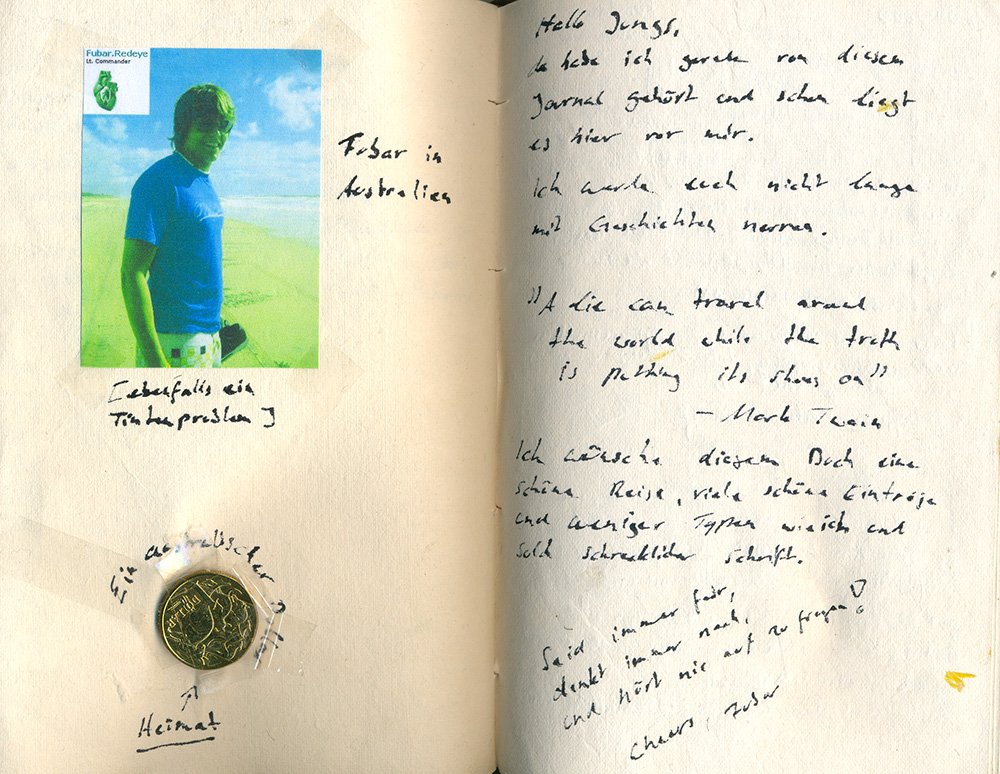 Fubar.Redeye
Lt. Commander
Fubar in
Australien
[ebenfalls ein
Tintenproblem]
Ein australischer Dollar
Heimat
Hallo Jungs,
da habe ich gerade von diesem
Journal gehört und schon liegt
es hier vor mir.
Ich werde euch nicht lange
mit Geschichten nerven.
"A lie can travel around
the world while the truth
is putting its shoes on"
- Mark Twain
Ich wünsche diesem Buch eine
schöne Reise, viele schöne Einträge
und weniger Typen wie ich und
solch schrecklicher Schrift.
Seid immer fair,
denkt immer nach,
und hört nie auf zu fragen!
Cheers, Fubar